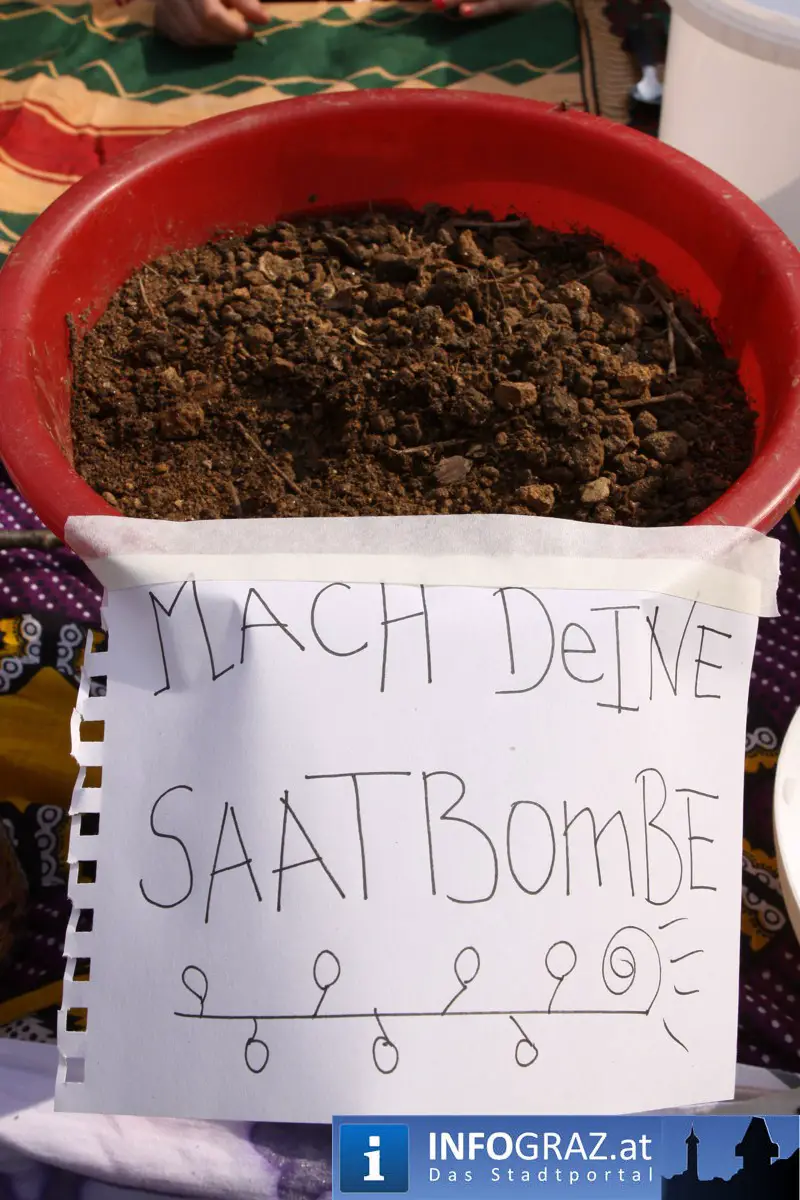 MACH DeINE
SAATBOmBE
i INFOGRAZ.at
Das Stadtportal